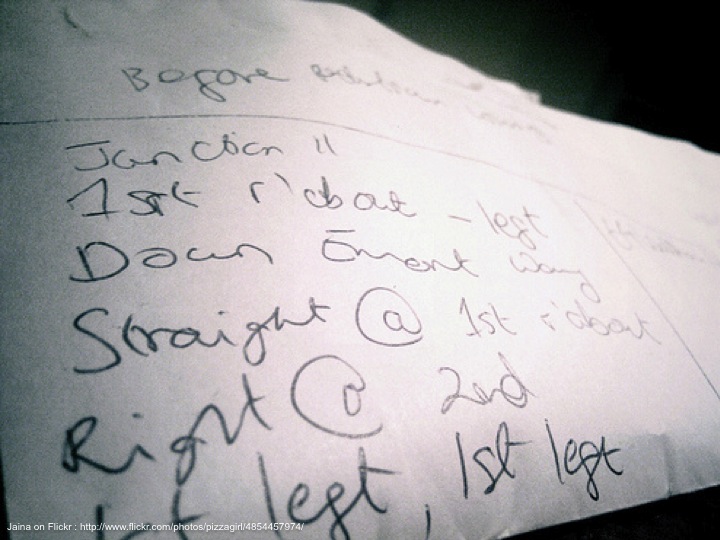 Before
Junction 11
1st r'about - left
Down way
Straight @ 1st r'about
Right @ 2nd
1st left, 1st left
Jaina on Flickr : http://www.flickr.com/photos/pizzagirl/4854457974/